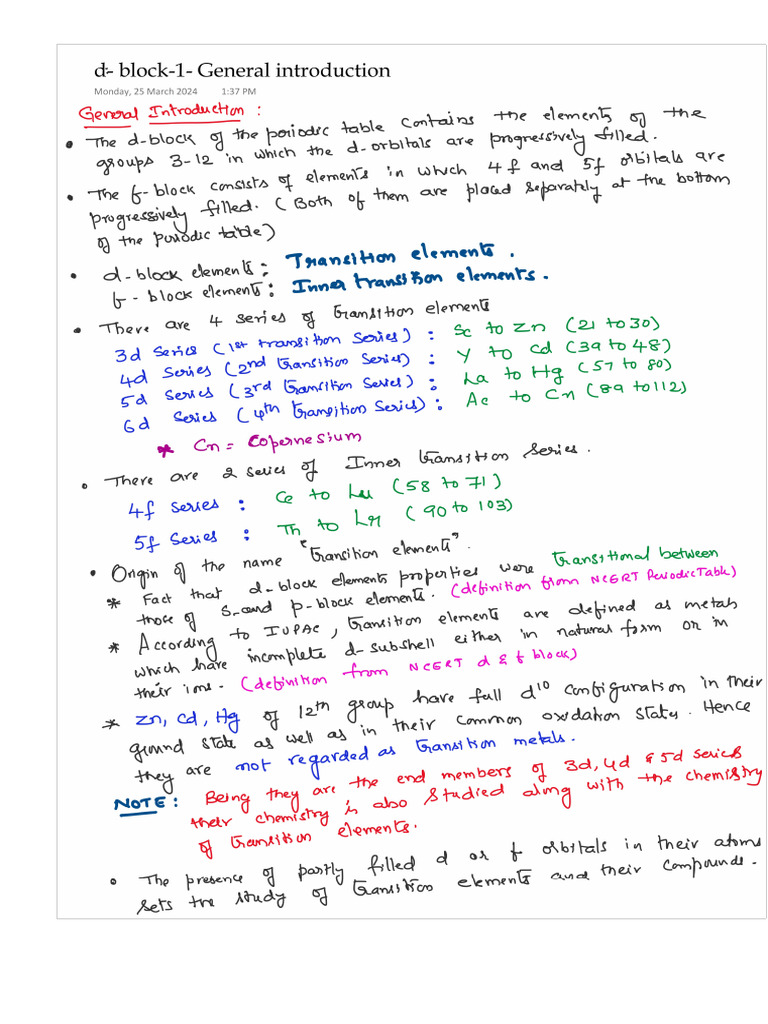 d- block-1- General introduction
Monday, 25 March 2024 1:37 PM
General Introduction :
• The d-block of the periodic table contains the elements of the
groups 3-12 in which the d-orbitals are progressively filled.
• The f-block consists of elements in which 4f and 5f orbitals are
progressively filled. (Both of them are placed separately at the bottom
of the periodic table)
• d-block elements : Transition elements.
f - block elements : Inner transition elements.
• There are 4 series of transition elements
3d Series (1st transition Series) : Sc to Zn (21 to 30)
4d Series (2nd transition Series) : Y to Cd (39 to 48)
5d Series (3rd transition Series) : La to Hg (57 to 80)
6d Series (4th transition Series) : Ac to Cn (89 to 112)
* Cn = Copernesium
• There are 2 series of Inner transition series.
4f series : Ce to Lu (58 to 71)
5f series : Th to Lr (90 to 103)
• Origin of the name "transition elements".
* Fact that d-block elements properties were transitional between
those of s-and p-block elements. (definition from NCERT Periodic Table)
* According to IUPAC, transition elements are defined as metals
which have incomplete d-subshell either in natural form or in
their ions. (definition from NCERT d & f block)
* Zn, Cd, Hg of 12th group have full d10 configuration in their
ground state as well as in their common oxidation states. Hence
they are not regarded as transition metals.
NOTE : Being they are the end members of 3d, 4d & 5d series
their chemistry is also studied along with the chemistry
of transition elements.
• The presence of partly filled d or f orbitals in their atoms
sets the study of transition elements and their compounds.